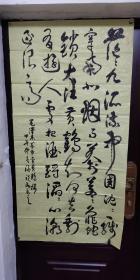 茫茫九派流中国沉沉一线
穿南北烟雨莽苍苍龟蛇
锁大江黄鹤知何去剩
有游人处把酒酹滔滔心潮
逐浪高
毛泽东菩萨蛮黄鹤楼